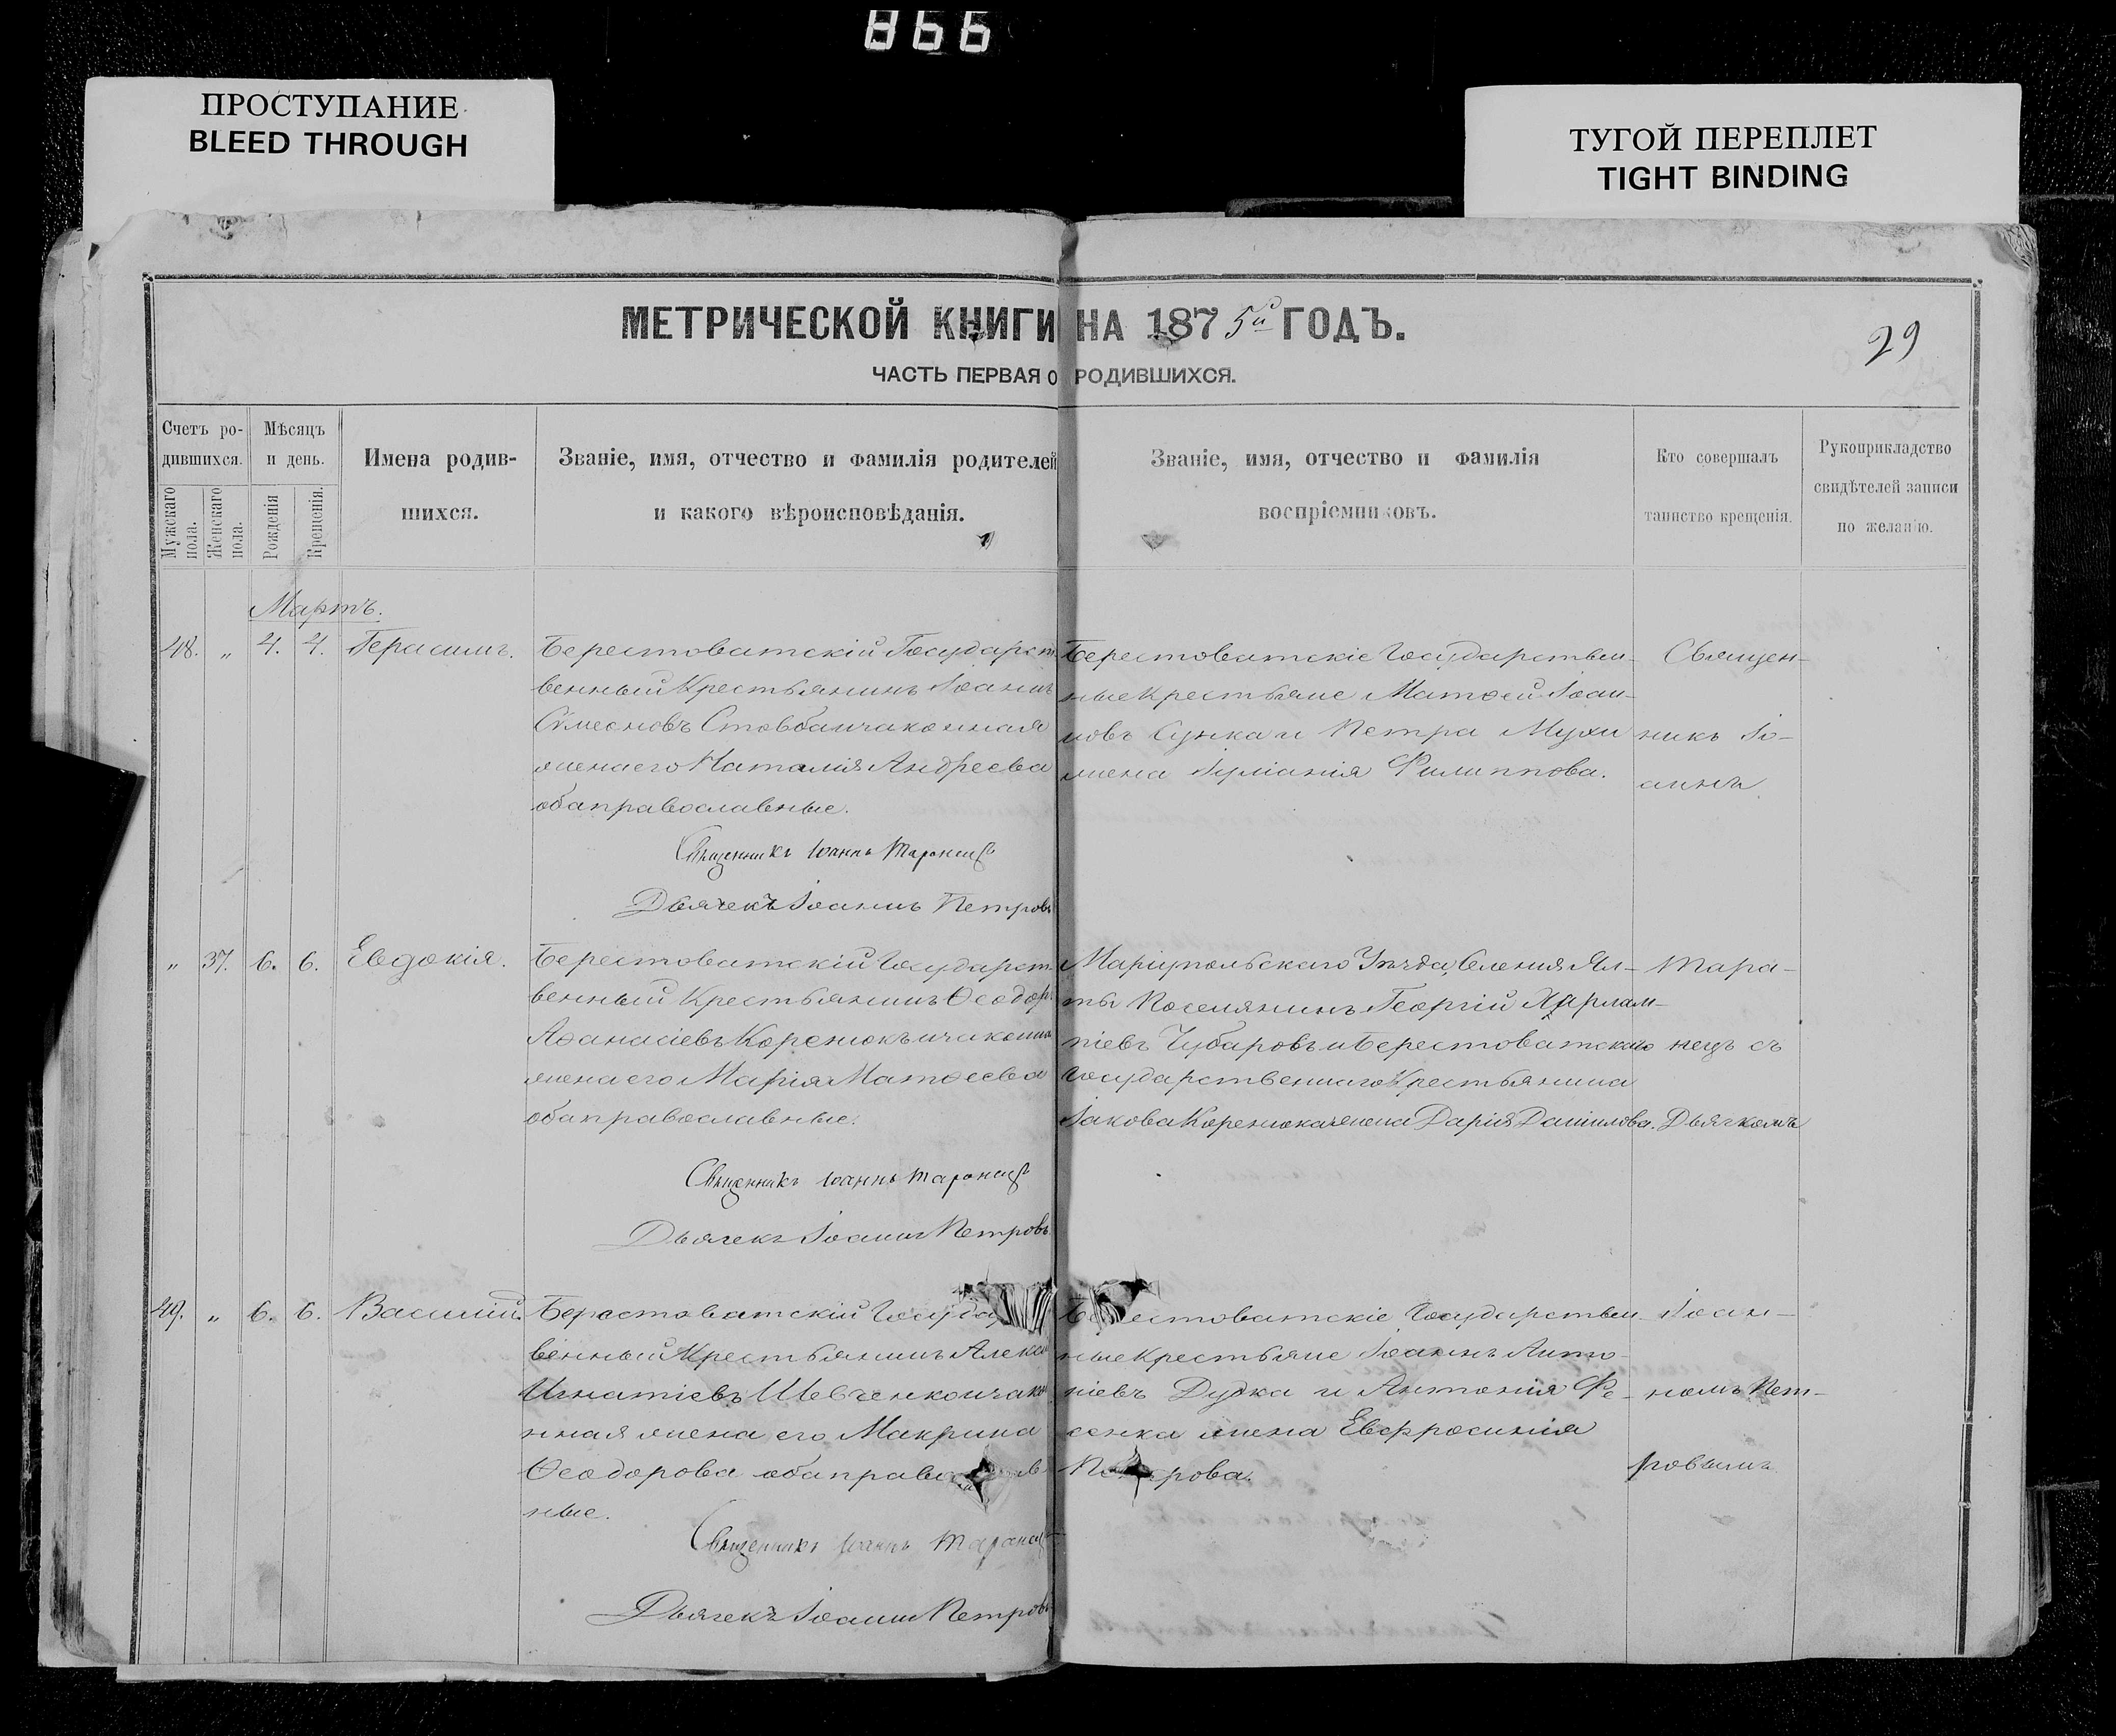 866
ПРОСТУПАНИЕ
BLEED THROUGH
ТУГОЙ ПЕРЕПЛЕТ
TIGHT BINDING
МЕТРИЧЕСКОЙ КНИГИ НА 1875й ГОДЪ.
29
ЧАСТЬ ПЕРВАЯ О РОДИВШИХСЯ.
Счетъ ро-
дившихся.
Мужскаго пола.
Женскаго пола.
Мѣсяцъ
и день.
Рожденія
Крещенія.
Имена родив-
шихся.
Званіе, имя, отчество и фамилія родителей
и какого вѣроисповѣданія.
Званіе, имя, отчество и фамилія
воспріемниковъ.
Кто совершалъ
таинство крещенія.
Рукоприкладство
свидѣтелей записи
по желанію.
Мартъ.
48. „ 4. 4. Герасимъ.
Берестоватскій Государст
венный Крестьянинъ Іоаннъ
Сѵмеоновъ Стовба и законная
жена его Наталія Андреева
оба православные.
Священникъ Іоаннъ Таранецъ
Дьячекъ Іоаннъ Петровъ
Берестоватскіе Государствен-
ные Крестьяне Матѳей Іоан-
новъ и Петра Мухи
жена Іуліанія Филиппова.
Священ-
никъ Іо-
аннъ
„ 37. 6. 6. Евдокія.
Берестоватскій Государст
венный Крестьянинъ Ѳеодоръ
Аѳанасіевъ Коренюкъ и законна
жена его Марія Матѳеева
оба православные.
Священникъ Іоаннъ Таранецъ
Дьячекъ Іоаннъ Петровъ
Маріупольскаго Уѣзда, Селенія Ял-
ты Поселянинъ Георгій Харлам-
піевъ Чубаровъ и Берестоватскаго
Государственнаго Крестьянина
Іакова Коренюка жена Дарія Данилова.
Тара-
нецъ съ
Дьячкомъ
49. „ 6. 6. Василій.
Берестоватскій Государ
венный Крестьянинъ Алексѣ
Игнатіевъ Шевченко и зако
нная жена его Макрина
Ѳеодорова оба православ
ные.
Священникъ Іоаннъ Таранец
Дьячекъ Іоаннъ Петровъ
Берестоватскіе Государствен
ные Крестьяне Іоаннъ Анто-
ніевъ Дудка и Антонія Фе-
сенка жена Евфросинія
Петрова.
Іоан-
номъ Пет-
ровымъ